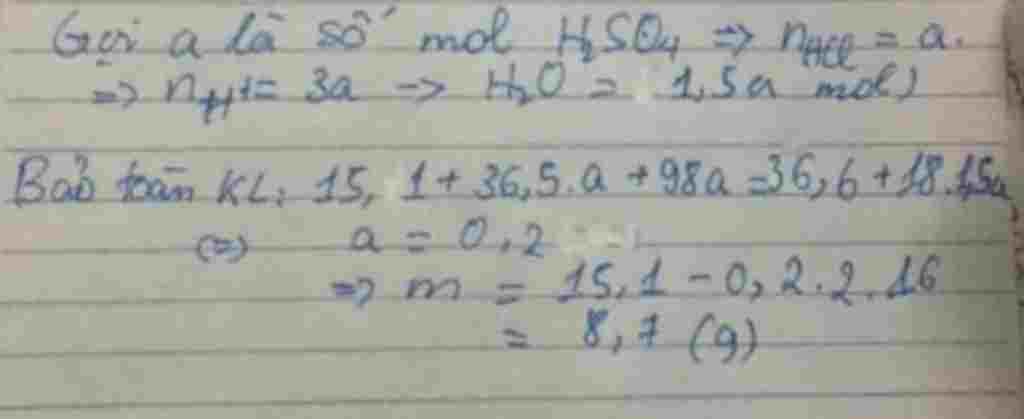 Gọi a là số mol H₂SO₄ => nHCl = a.
=> nH+ = 3a -> H₂O = 1,5a mol)
Bảo toàn KL: 15,1 + 36,5.a + 98a = 36,6 + 18.1,5a
(=) a = 0,2
=> m = 15,1 - 0,2.2.16
= 8,7 (g)